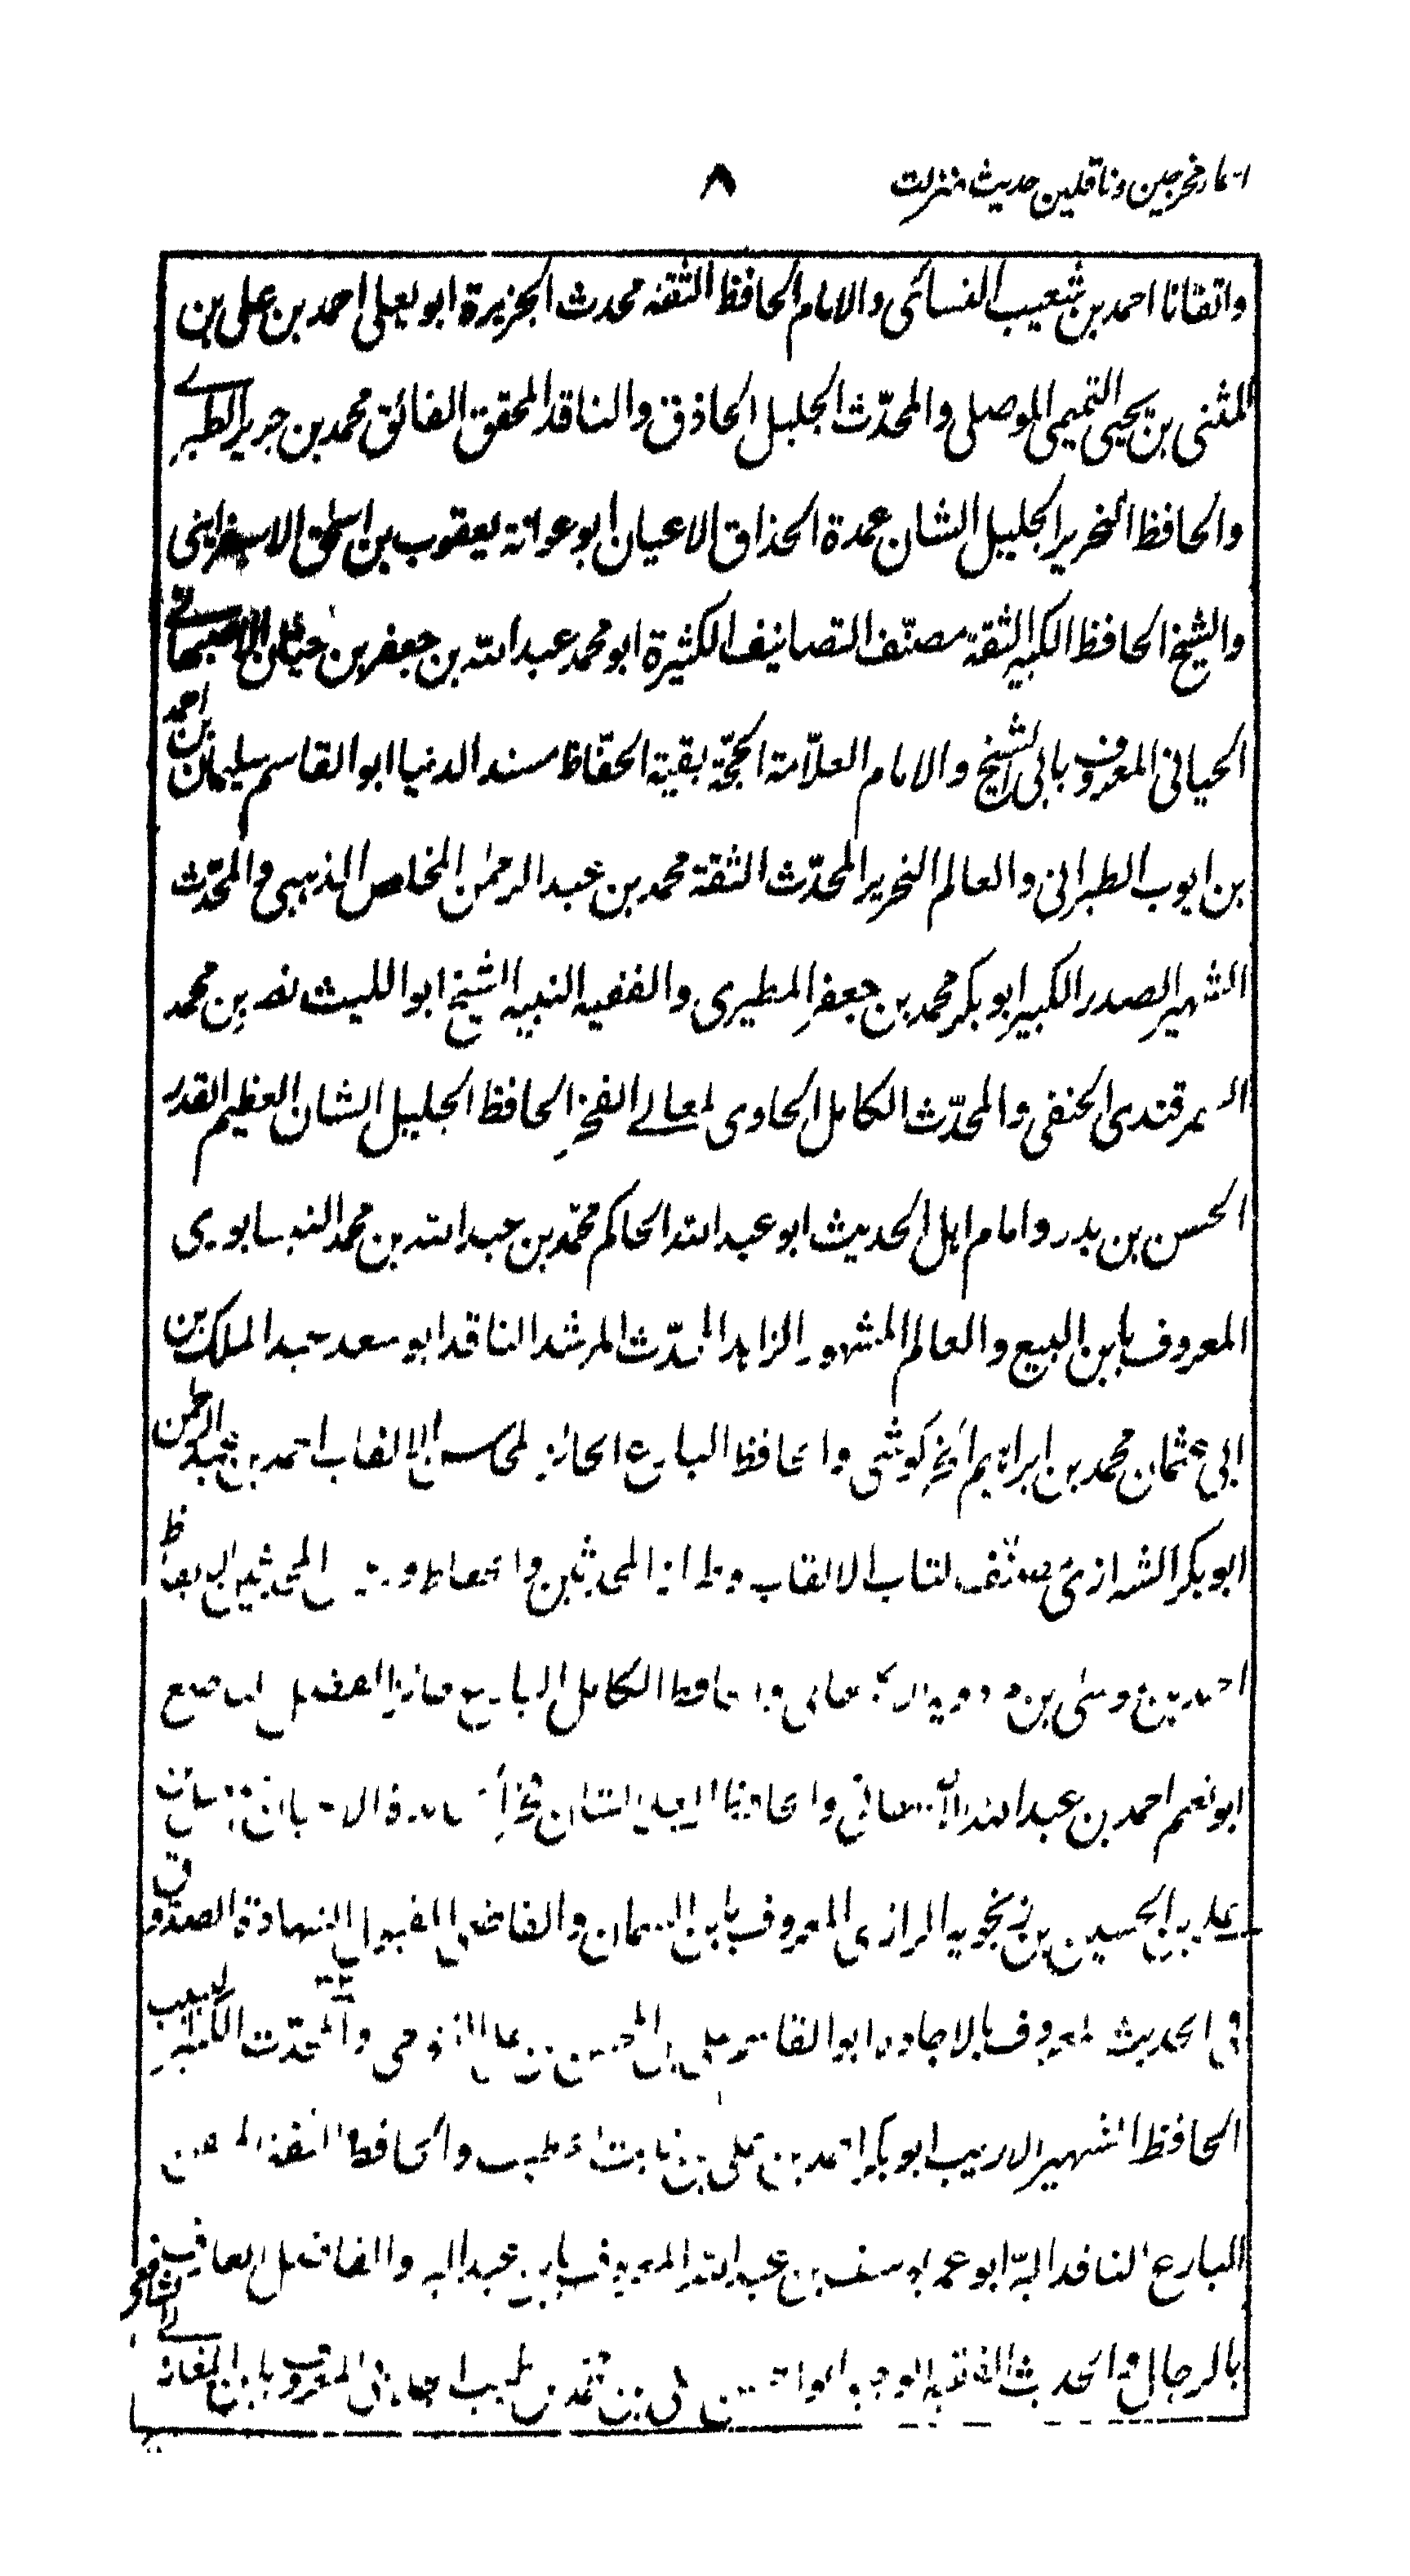 اسماء مخرجین و ناقلین حدیث منزلت ۸
واتقانا احمد بن شعیب النسائی والامام الحافظ الثقة محدث الجزیرة ابو یعلی احمد بن علی بن
المثنی بن یحیی التمیمی الموصلی والمحدّث الجلیل الحاذق والناقد المحقق الفائق محمد بن جریر الطبرے
والحافظ النحریر الجلیل الشان عمدة الحذاق الاعیان ابو عوانة یعقوب بن اسحٰق الاسفراینی
والشیخ الحافظ الکبیر الثقة مصنّف التصانیف الکثیرة ابو محمد عبد الله بن جعفر بن حیان الاصبهانے
الحیانی المعروف بابی الشیخ والامام العلّامة الحجّة بقیة الحفّاظ مسند الدنیا ابو القاسم سلیمان بن احمد
بن ایوب الطبرانی والعالم النحریر المحدّث الثقة محمد بن عبد الرحمٰن المخلص الذهبی والمحدّث
الشهیر الصدر الکبیر ابو بکر محمد بن جعفر المطیری والفقیه النبیه الشیخ ابو اللیث نصر بن محمد
السمرقندی الحنفی والمحدّث الکامل الحاوی لمعالے الفخر الحافظ الجلیل الشان العظیم القدر
الحسن بن بدر وامام اهل الحدیث ابو عبد الله الحاکم محمّد بن عبد الله بن محمد النیسابوری
المعروف بابن البیع والعالم المشهور الزاهد المحدّث المرشد الناقد ابو سعد عبد الملک بن
ابی عثمان محمد بن ابراهیم الخرکوشی والحافظ البارع الحائز لمحاسن الالقاب احمد بن عبد الرحمن
ابو بکر الشیرازی مصنّف کتاب الالقاب وطراز المحدثین والحفاظ و المحدثین الایقاظ
احمد بن موسٰی بن مردویه الاصبهانی والحافظ الکامل البارع حائز الفضل الناصع
ابو نعیم احمد بن عبد الله الاصبهانی والحافظ الجلیل الشان
علے بن الحسین بن زنجویه الرازی المعروف بابن السمان والقاضی المقبول الشهادة الصدوق
فی الحدیث المعروف بالاجادة ابو القاسم علی بن المحسن بن علی التنوخی والمحدّث الکبیر اللبیب
الحافظ الشهیر الاریب ابو بکر احمد بن علی بن ثابت الخطیب والحافظ الثقة
البارع الناقد البرّ ابو عمر یوسف بن عبد الله المعروف بابن عبد البر والفاضل العارف
بالرجال والحدیث الفقیه الوجیه ابو الحسن علی بن محمد بن طیب الجلابی المعروف بابن المغازلے الشافعی